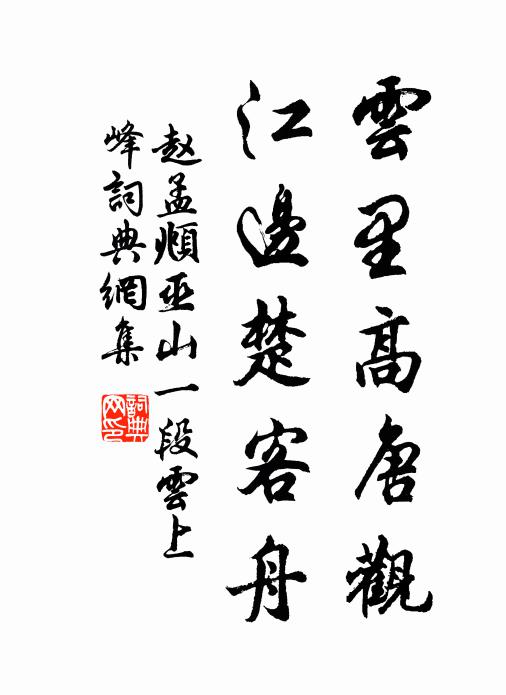 雲里高唐觀
江邊楚客舟
赵孟頫巫山一段雲上
峰詞典網集
詞典網印